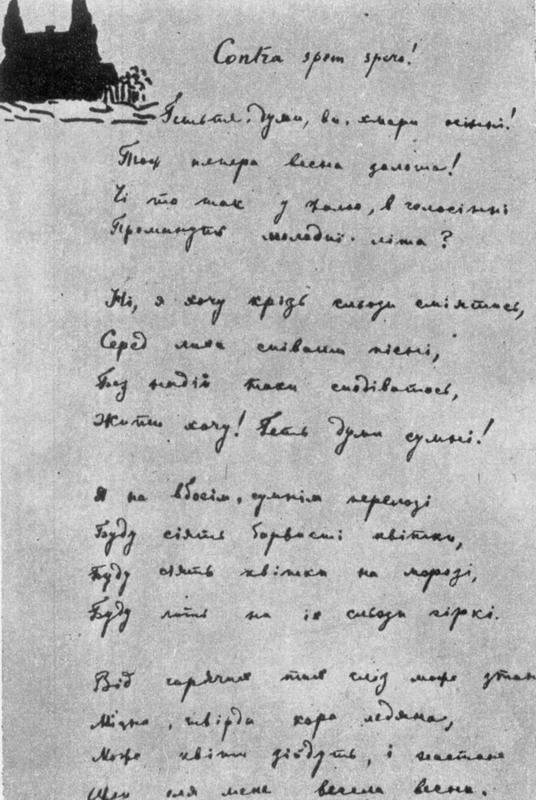 Contra spem spero!
Гетьте, думи, ви, хмари осінні!
Тож тепера весна золота!
Чи то так у жалю, в голосінні
Проминуть молодиі літа?
Ні, я хочу крізь сльози сміятись,
Серед лиха співати пісні,
Без надії таки сподіватось,
Жити хочу! Геть думи сумні!
Я на вбогім, сумнім перелозі
Буду сіять барвисті квітки,
Буду сіять квітки на морозі,
Буду лить на їх сльози гіркі.
Від гарячих тих сліз може зтане
Міцна, твірда кора ледяна,
Може квіти зійдуть, і настане
Щей для мене весела весна.